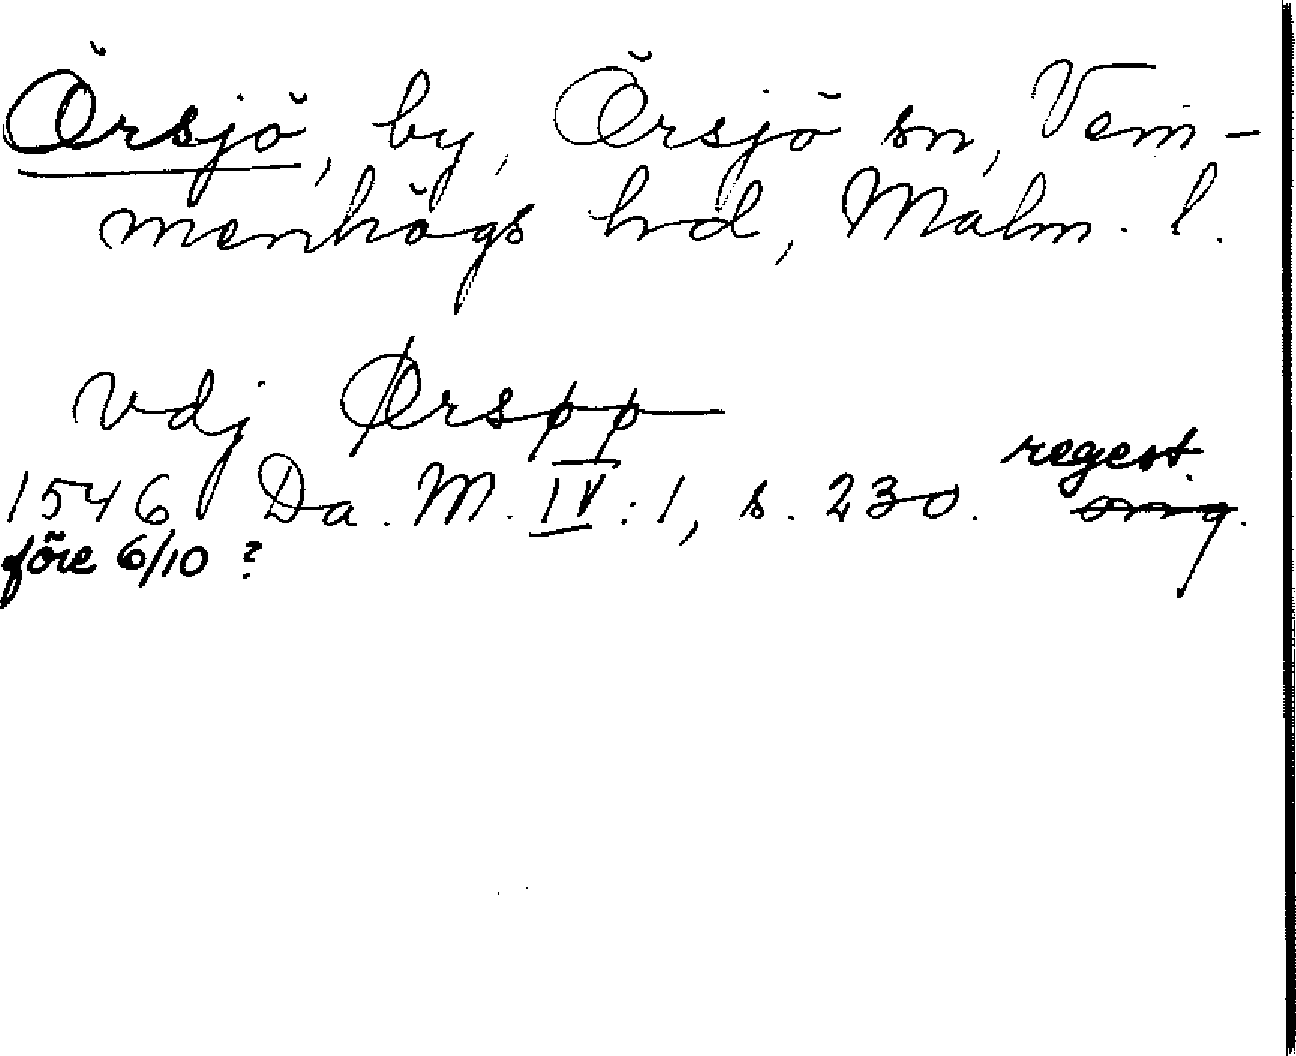 Örsjö, by, Örsjö sn, Vem-
menhögs hrd, Malm. l.
vdj Ørspp
regest.
1546 Da. M. IV:1, s. 230. orig.
före 6/10 ?